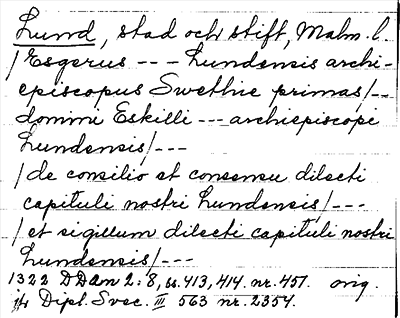 Lund, stad och stift, Malm. l.
/Esgerus --- Lundensis archi-
episcopus Swethie primas/--
domini Eskilli --- archiepiscopi
Lundensis/---
/de consilio et consensu dilecti
capituli nostri Lundensis/---
/et sigillum dilecti capituli nostri
Lundensis/---
1322 DDan 2:8, ss. 413, 414. nr. 451. orig.
jfr Dipl. Svec. III 563 nr. 2354.